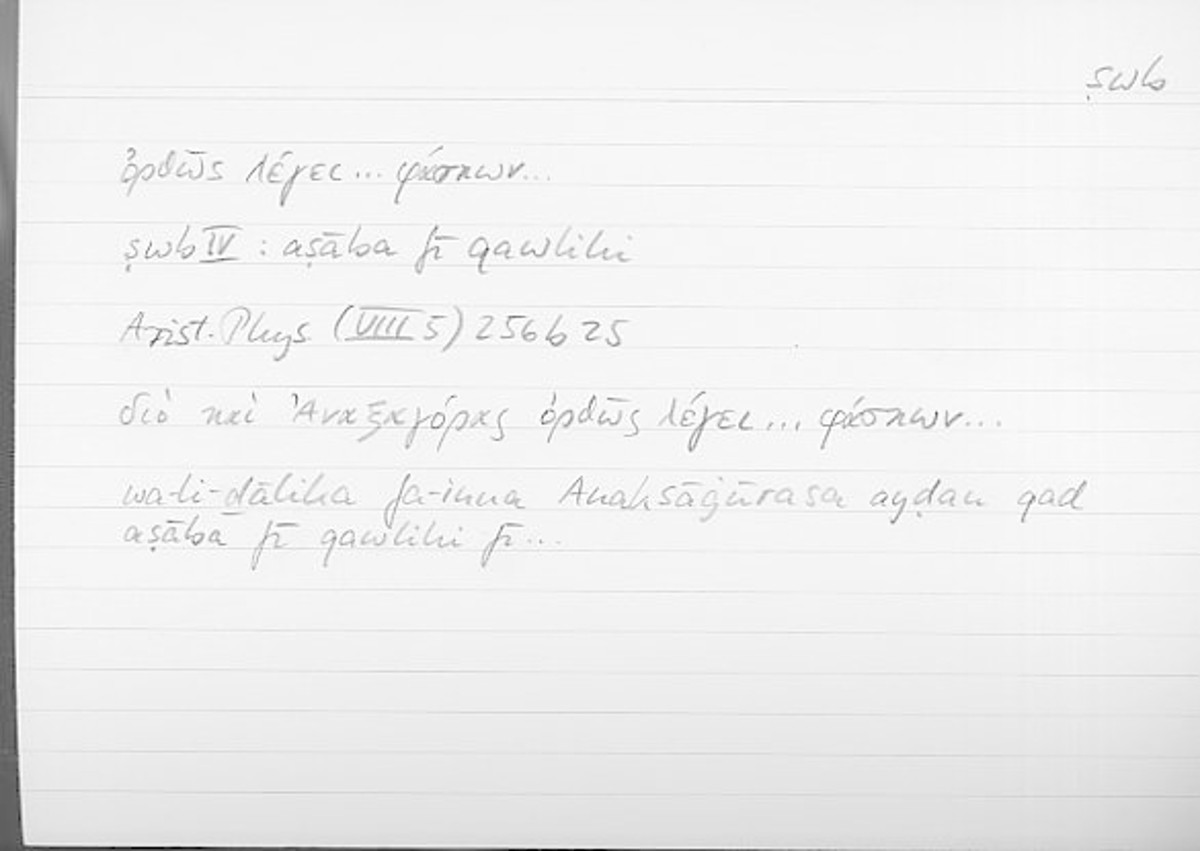 ṣwb
ὀρθῶς λέγει... φάσκων...
ṣwb IV : aṣāba fī qawlihi
Arist. Phys. (VIII 5) 256 b 25
διὸ καὶ Ἀναξαγόρας ὀρθῶς λέγει... φάσκων...
wa-li-ḏālika fa-inna Anaksāġūrasa ayḍan qad
aṣāba fī qawlihi fī...